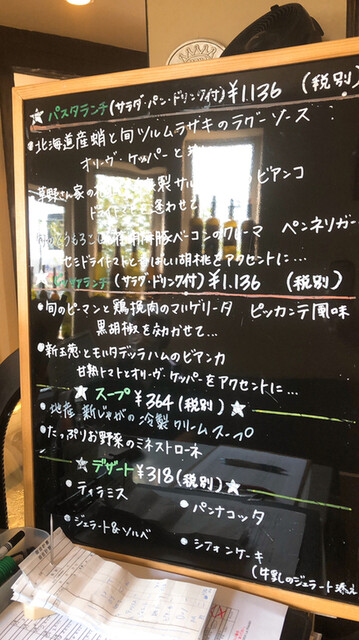 パスタランチ(サラダ・パン・ドリンク付)¥1.136 (税別)
•北海道産蛸と旬ツルムラサキのラグーソース
オリーヴ・ケッパーと
草野さん家の ビアンコ
ドライトマトと 合わせて
とうもろこし 豚ベーコンのクリーマ ペンネリガー
セミドライトマトと香ばしい胡桃をアクセントに…
ランチ(サラダ・ドリンク付)¥1.136 (税別)
•旬のピーマンと鶏挽肉のマルゲリータ ピッカンテ風味
黒胡椒をきかせて…
•新玉葱とモルタデッラハムのビアンカ
甘熟トマトとオリーヴ・ケッパーをアクセントに…
スープ ¥364(税別)
•地産 新じゃがの冷製クリームスープ
•たっぷりお野菜のミネストローネ
デザート ¥318(税別)
•ティラミス •パンナコッタ
•ジェラート&ソルベ •シフォンケーキ
(牛乳のジェラート添え